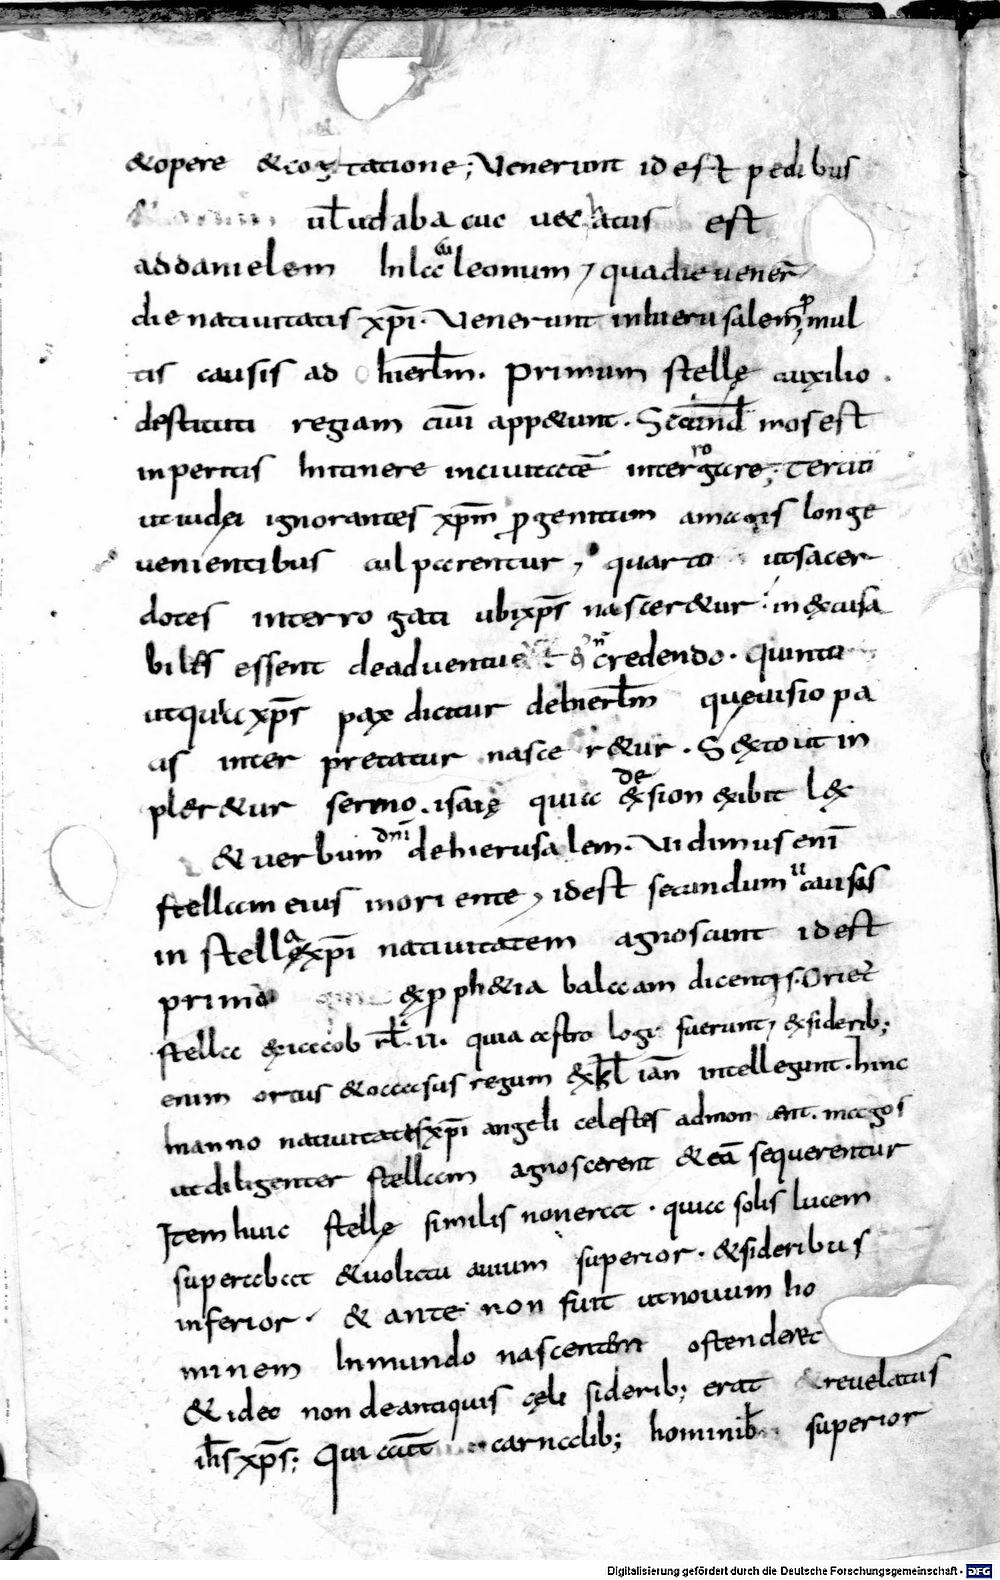 &opere &cogitatione; Venerunt idest pedibus
ul̄ ud abacuc uechatus est
addanielem Inlacu leonum, quadie uener̄
die natiuitatis xp̄i. Venerunt inhierusalem, p mul
tis causis ad hierl̄m. primum stellę auxilio
destituti regiam ciui app&unt. Scd̄ mosest
inpertus Intinere inciuitatē interrogare; Tertiū
utiudei ignorantes xp̄m ꝓgenitum amagis longe
venientibus culparentur, quarto utsacer
dotes interrogati ubixp̄s nascer&ur. in&cusa
biles essent deadventu credendo. Quinta
utquia xp̄s pax dicitur dehierl̄m quęuisio pa
cis inter pretatur nascer&ur. S&to ut in
pler&ur sermo. isaię quia de sion &ibit l&
& verbum dn̄i dehierusalem. Vidimus enī
stellam eius inoriente, idest secundum ii causas
in stella xp̄i natiuitatem agnoscunt idest
primo &ꝓph&ia balaam dicentis. Oriet̄
stella &iacob rl̄. ii. quia astrologi fuerunt, &siderib;
enim ortus &occasus regum &kl̄ ian̄ intellegunt. hinc
Inanno natiuitatis xp̄i angeli celestes admonent. magos
utdiligenter stellam agnoscerent &eā sequerentur
Item huic stellę similis nonerat. quia solis lucem
superabat &uolatu auium superior. &sideribus
inferior. & ante non fuit utnouum ho
minem Inmundo nascentem ostenderet
&ideo non deantiquis cęli siderib; erat &revelatus
ih̄s xp̄s; Qui aut̄ carnalib; hominib; superior
Digitalisierung gefördert durch die Deutsche Forschungsgemeinschaft - DFG